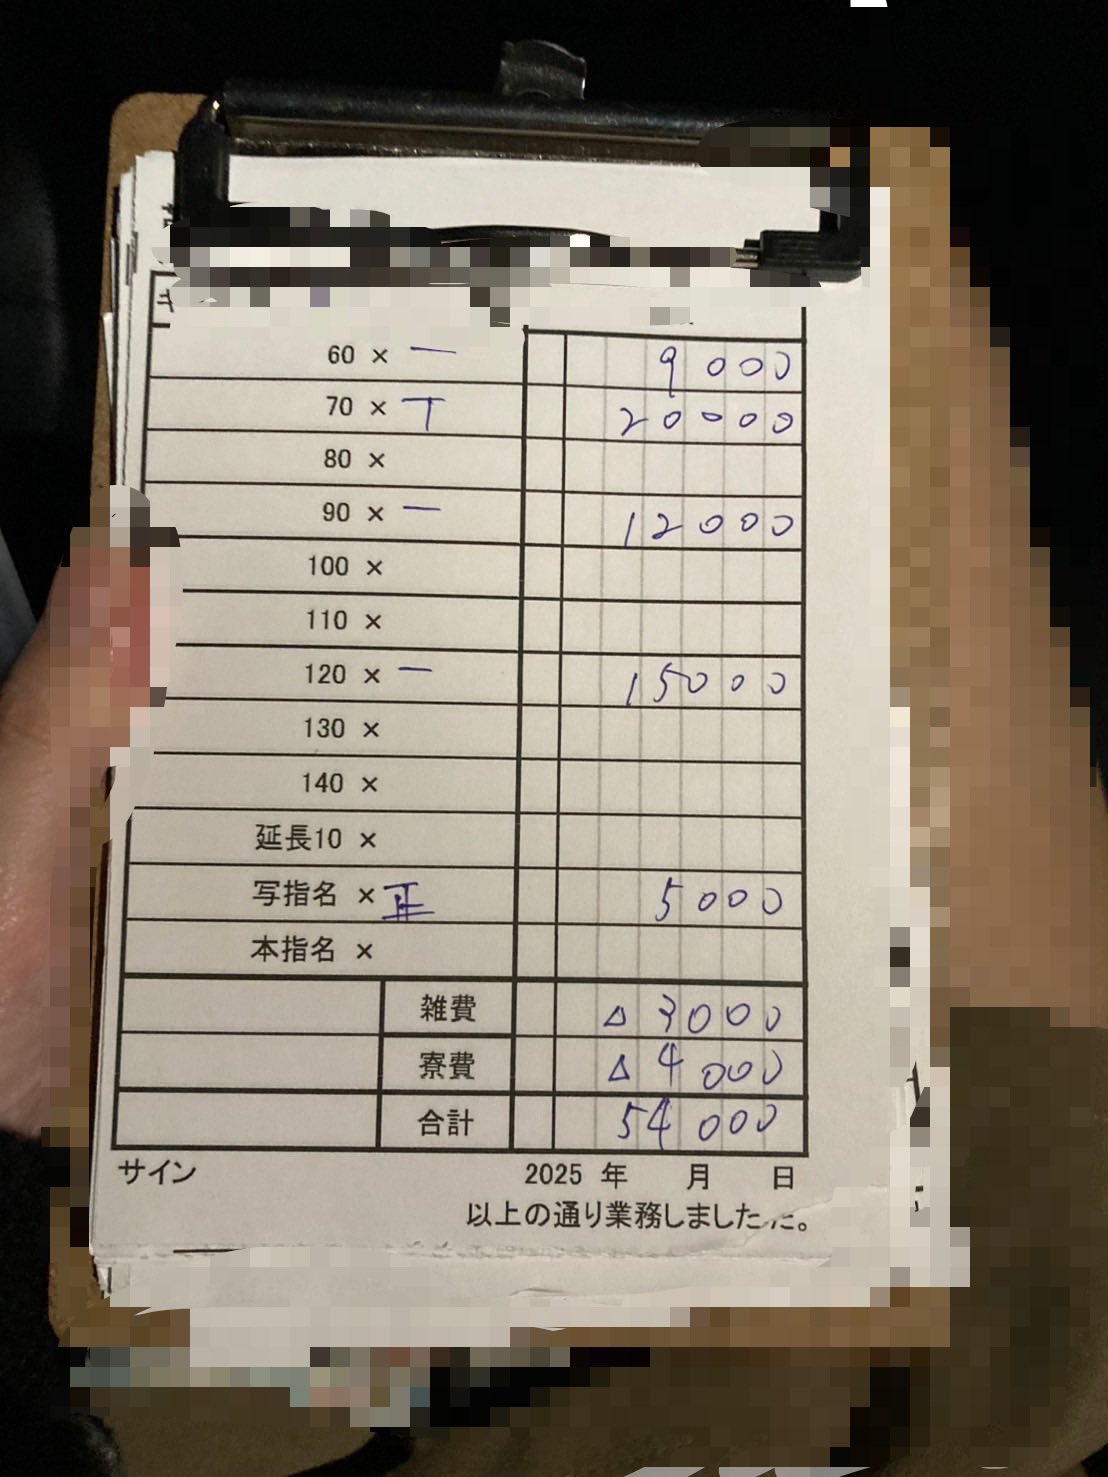 60 × 一 9000
70 × T 20000
80 ×
90 × 一 12000
100 ×
110 ×
120 × 一 15000
130 ×
140 ×
延長10 ×
写指名 × 正 5000
本指名 ×
雑費 △3000
寮費 △4000
合計 54000
サイン 2025 年 月 日
以上の通り業務しました。